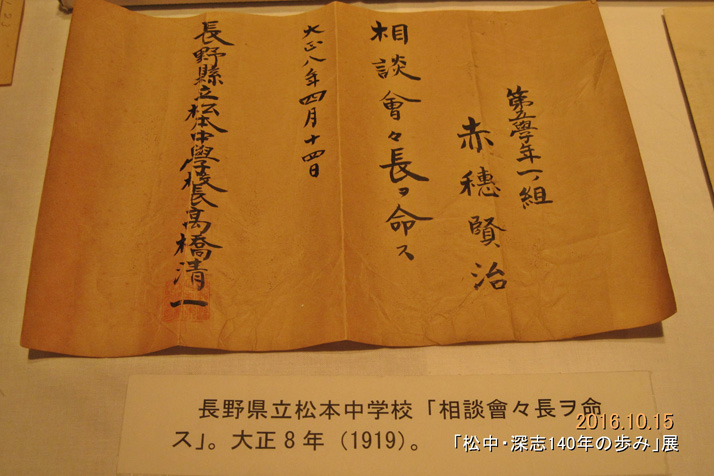 第五學年一組
赤穗賢治
相談會々長ヲ命ス
大正八年四月十四日
長野縣立松本中學校長高橋清一
長野県立松本中学校「相談會々長ヲ命
ス」。大正8年（1919）。
2016.10.15
「松中・深志140年の歩み」展